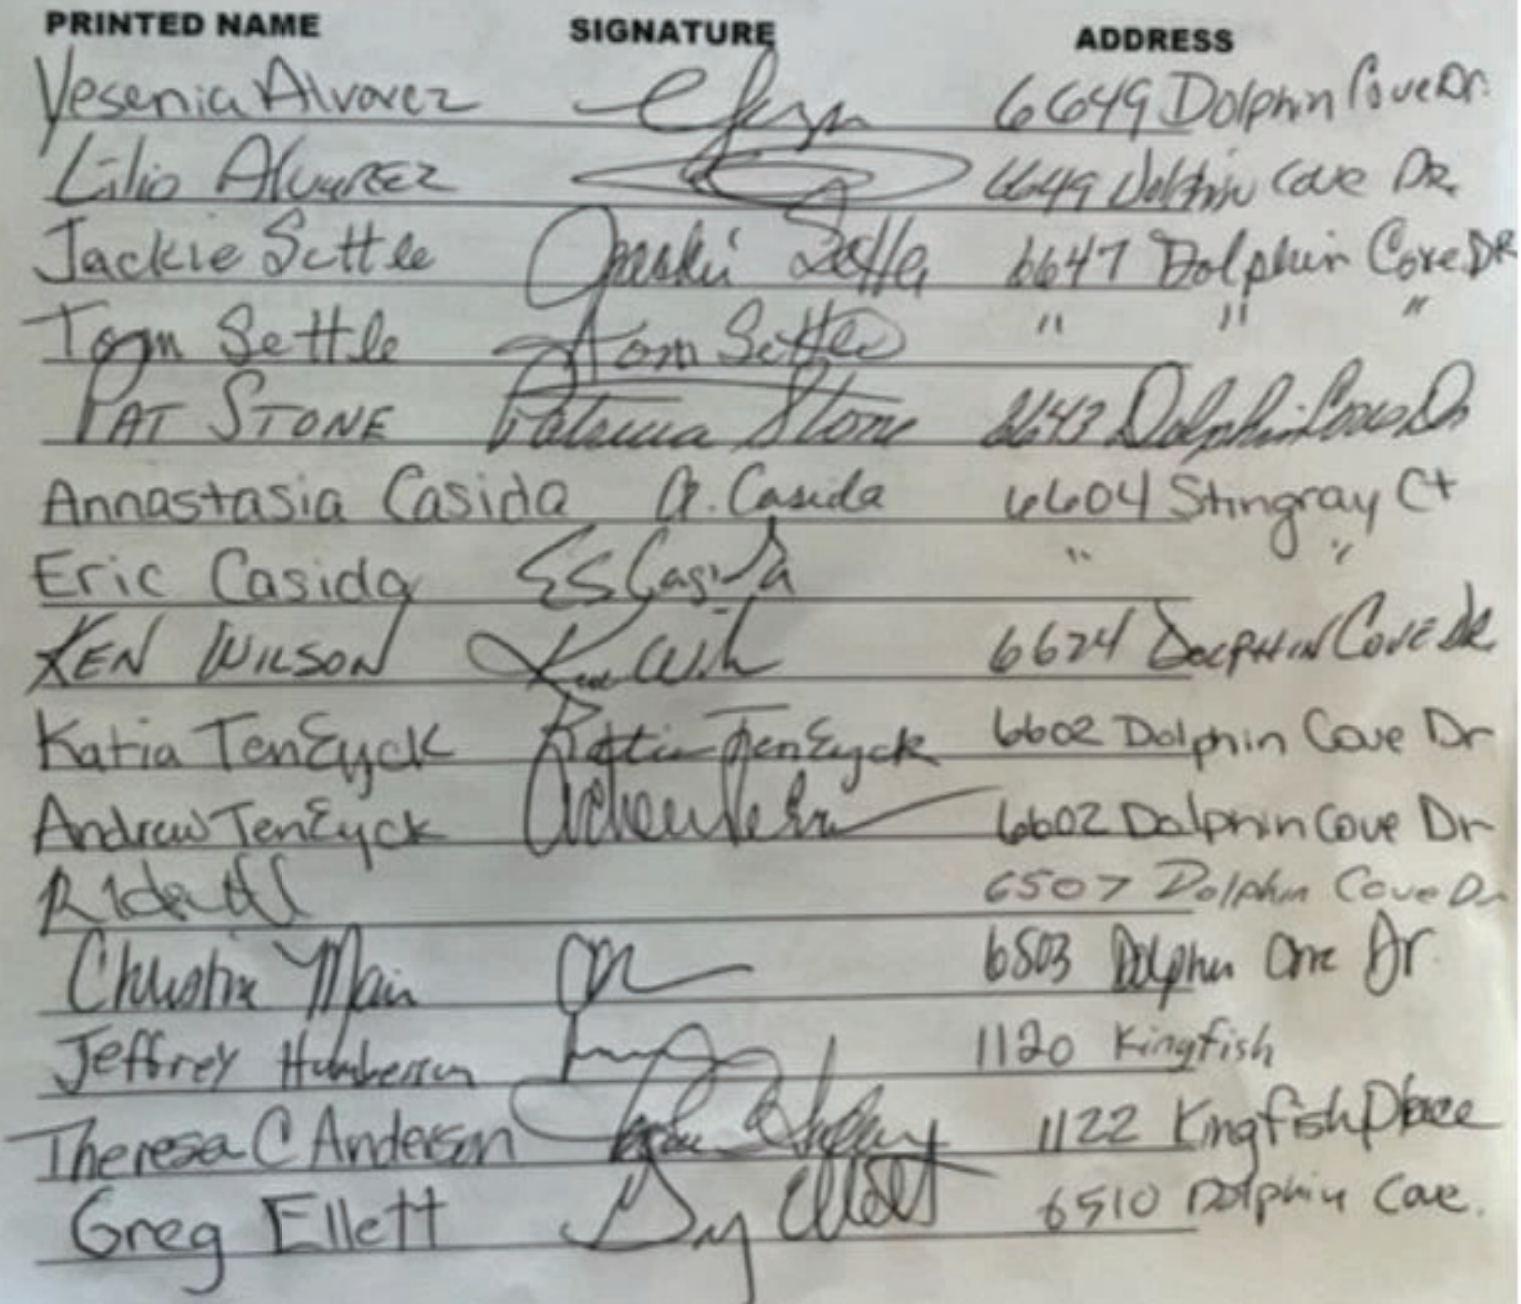 PRINTED NAME SIGNATURE ADDRESS
Yesenia Alvarez 6649 Dolphin Cove Dr.
Lilio Alvarez 6649 Dolphin Cove DR.
Jackie Settle Jackie Settle 6647 Dolphin Cove DR
Tom Settle Tom Settle " " "
PAT STONE Patricia Stone 6643 Dolphin Cove Dr
Annastasia Casida A. Casida 6604 Stingray Ct
Eric Casida ES Casida " "
KEN WILSON Ken 6624 DOLPHIN COVE DR.
Katia TenEyck Katia TenEyck 6602 Dolphin Cove Dr
Andrew TenEyck 6602 Dolphin Cove Dr
6507 Dolphin Cove Dr
Christine Main 6503 Dolphin Cove Dr.
Jeffrey Humberson 1120 Kingfish
Theresa C Anderson 1122 Kingfish Place
Greg Ellett Greg Ellett 6510 Dolphin Cove.